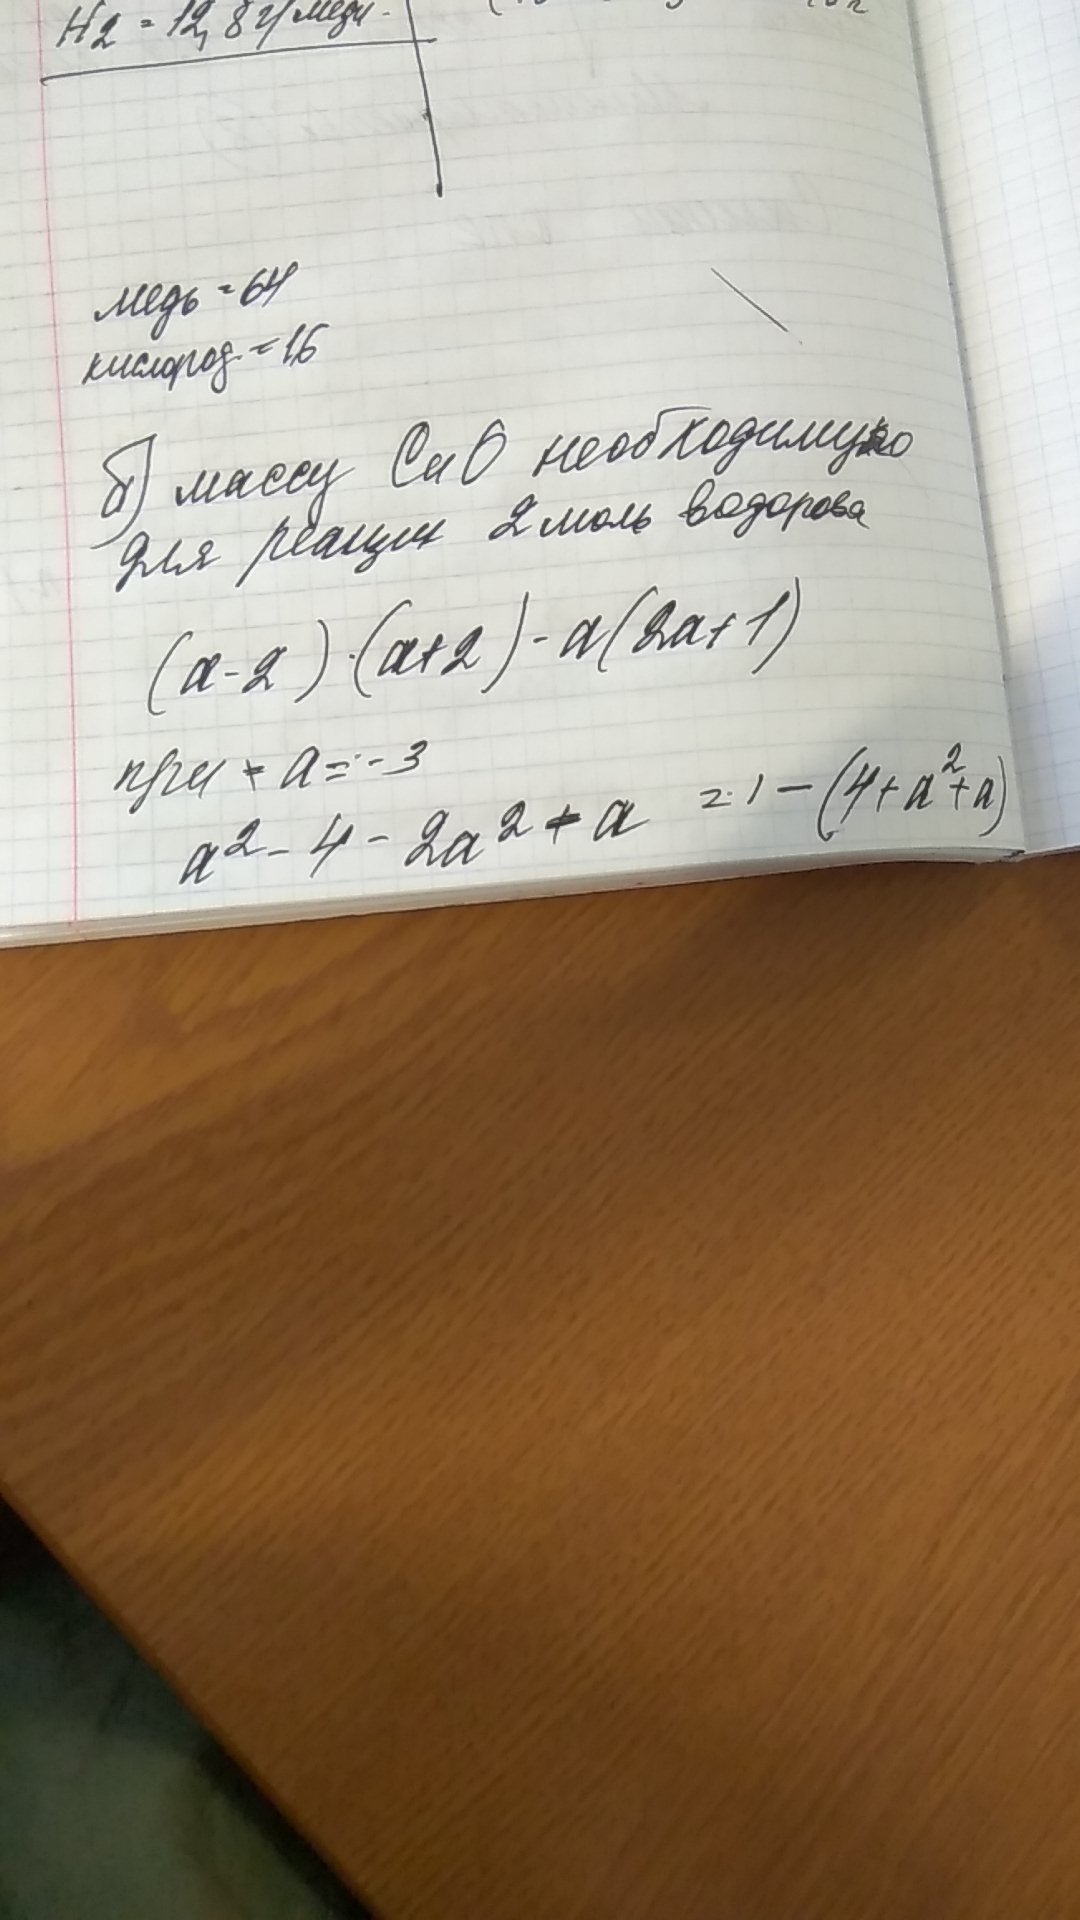 H2 = 12,8 г/меди.
медь = 64
кислород. = 16
б) массу CuO необходимую
для реакции 2 моль водорова
(a-2)·(a+2)-a(2a+1)
при a=-3
a²-4-2a²-a =1-(4+a²+a)